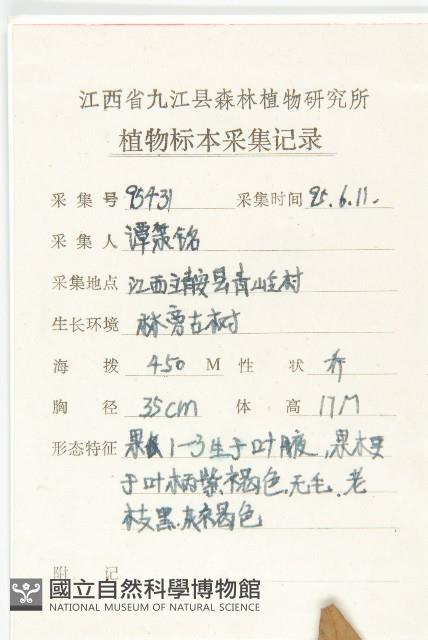 江西省九江县森林植物研究所
植物标本采集记录
采集号 95431 采集时间 95.6.11.
采集人 谭策铭
采集地点 江西靖安县青山村
生长环境 林旁古树
海拨 450 M 性状 乔
胸径 35cm 体高 17M
形态特征 果 1-3生于叶腋,果梗
于叶柄紫褐色.无毛.老
枝黑.灰褐色
附记
國立自然科學博物館
NATIONAL MUSEUM OF NATURAL SCIENCE